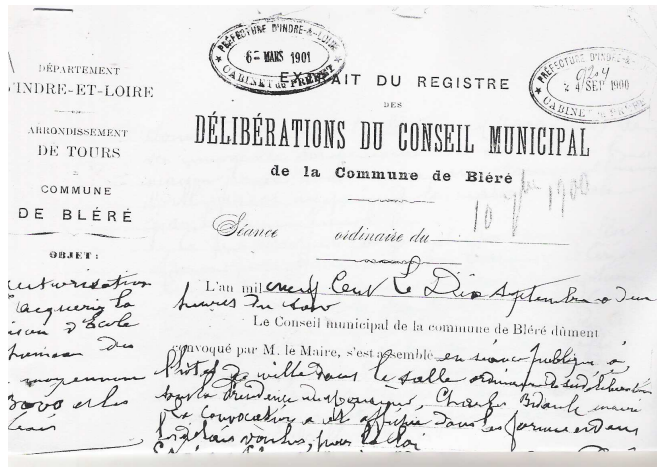 PRÉFECTURE D'INDRE-&-LOIRE
6 - MARS 1901
CABINET du PRÉFET
PRÉFECTURE D'INDRE-&-
9204
24 SEPT 1900
CABINET
DÉPARTEMENT
D'INDRE-ET-LOIRE
ARRONDISSEMENT
DE TOURS
COMMUNE
DE BLÉRÉ
OBJET :
autorisation
d'acquérir la
maison d'École
des
moyennant
et les
frais
EXTRAIT DU REGISTRE
DES
DÉLIBÉRATIONS DU CONSEIL MUNICIPAL
de la Commune de Bléré
10 7bre 1900
Séance ordinaire du
L'an mil neuf Cent Le Dix Septembre à deux
heures du soir
Le Conseil municipal de la commune de Bléré dûment
convoqué par M. le Maire, s'est assemblé en séance publique à
l'hôtel de ville dans la salle ordinaire de ses délibérations
sous la Présidence de Charles Bidault maire
La convocation a été affichée dans les formes et dans
les délais voulus pour la loi